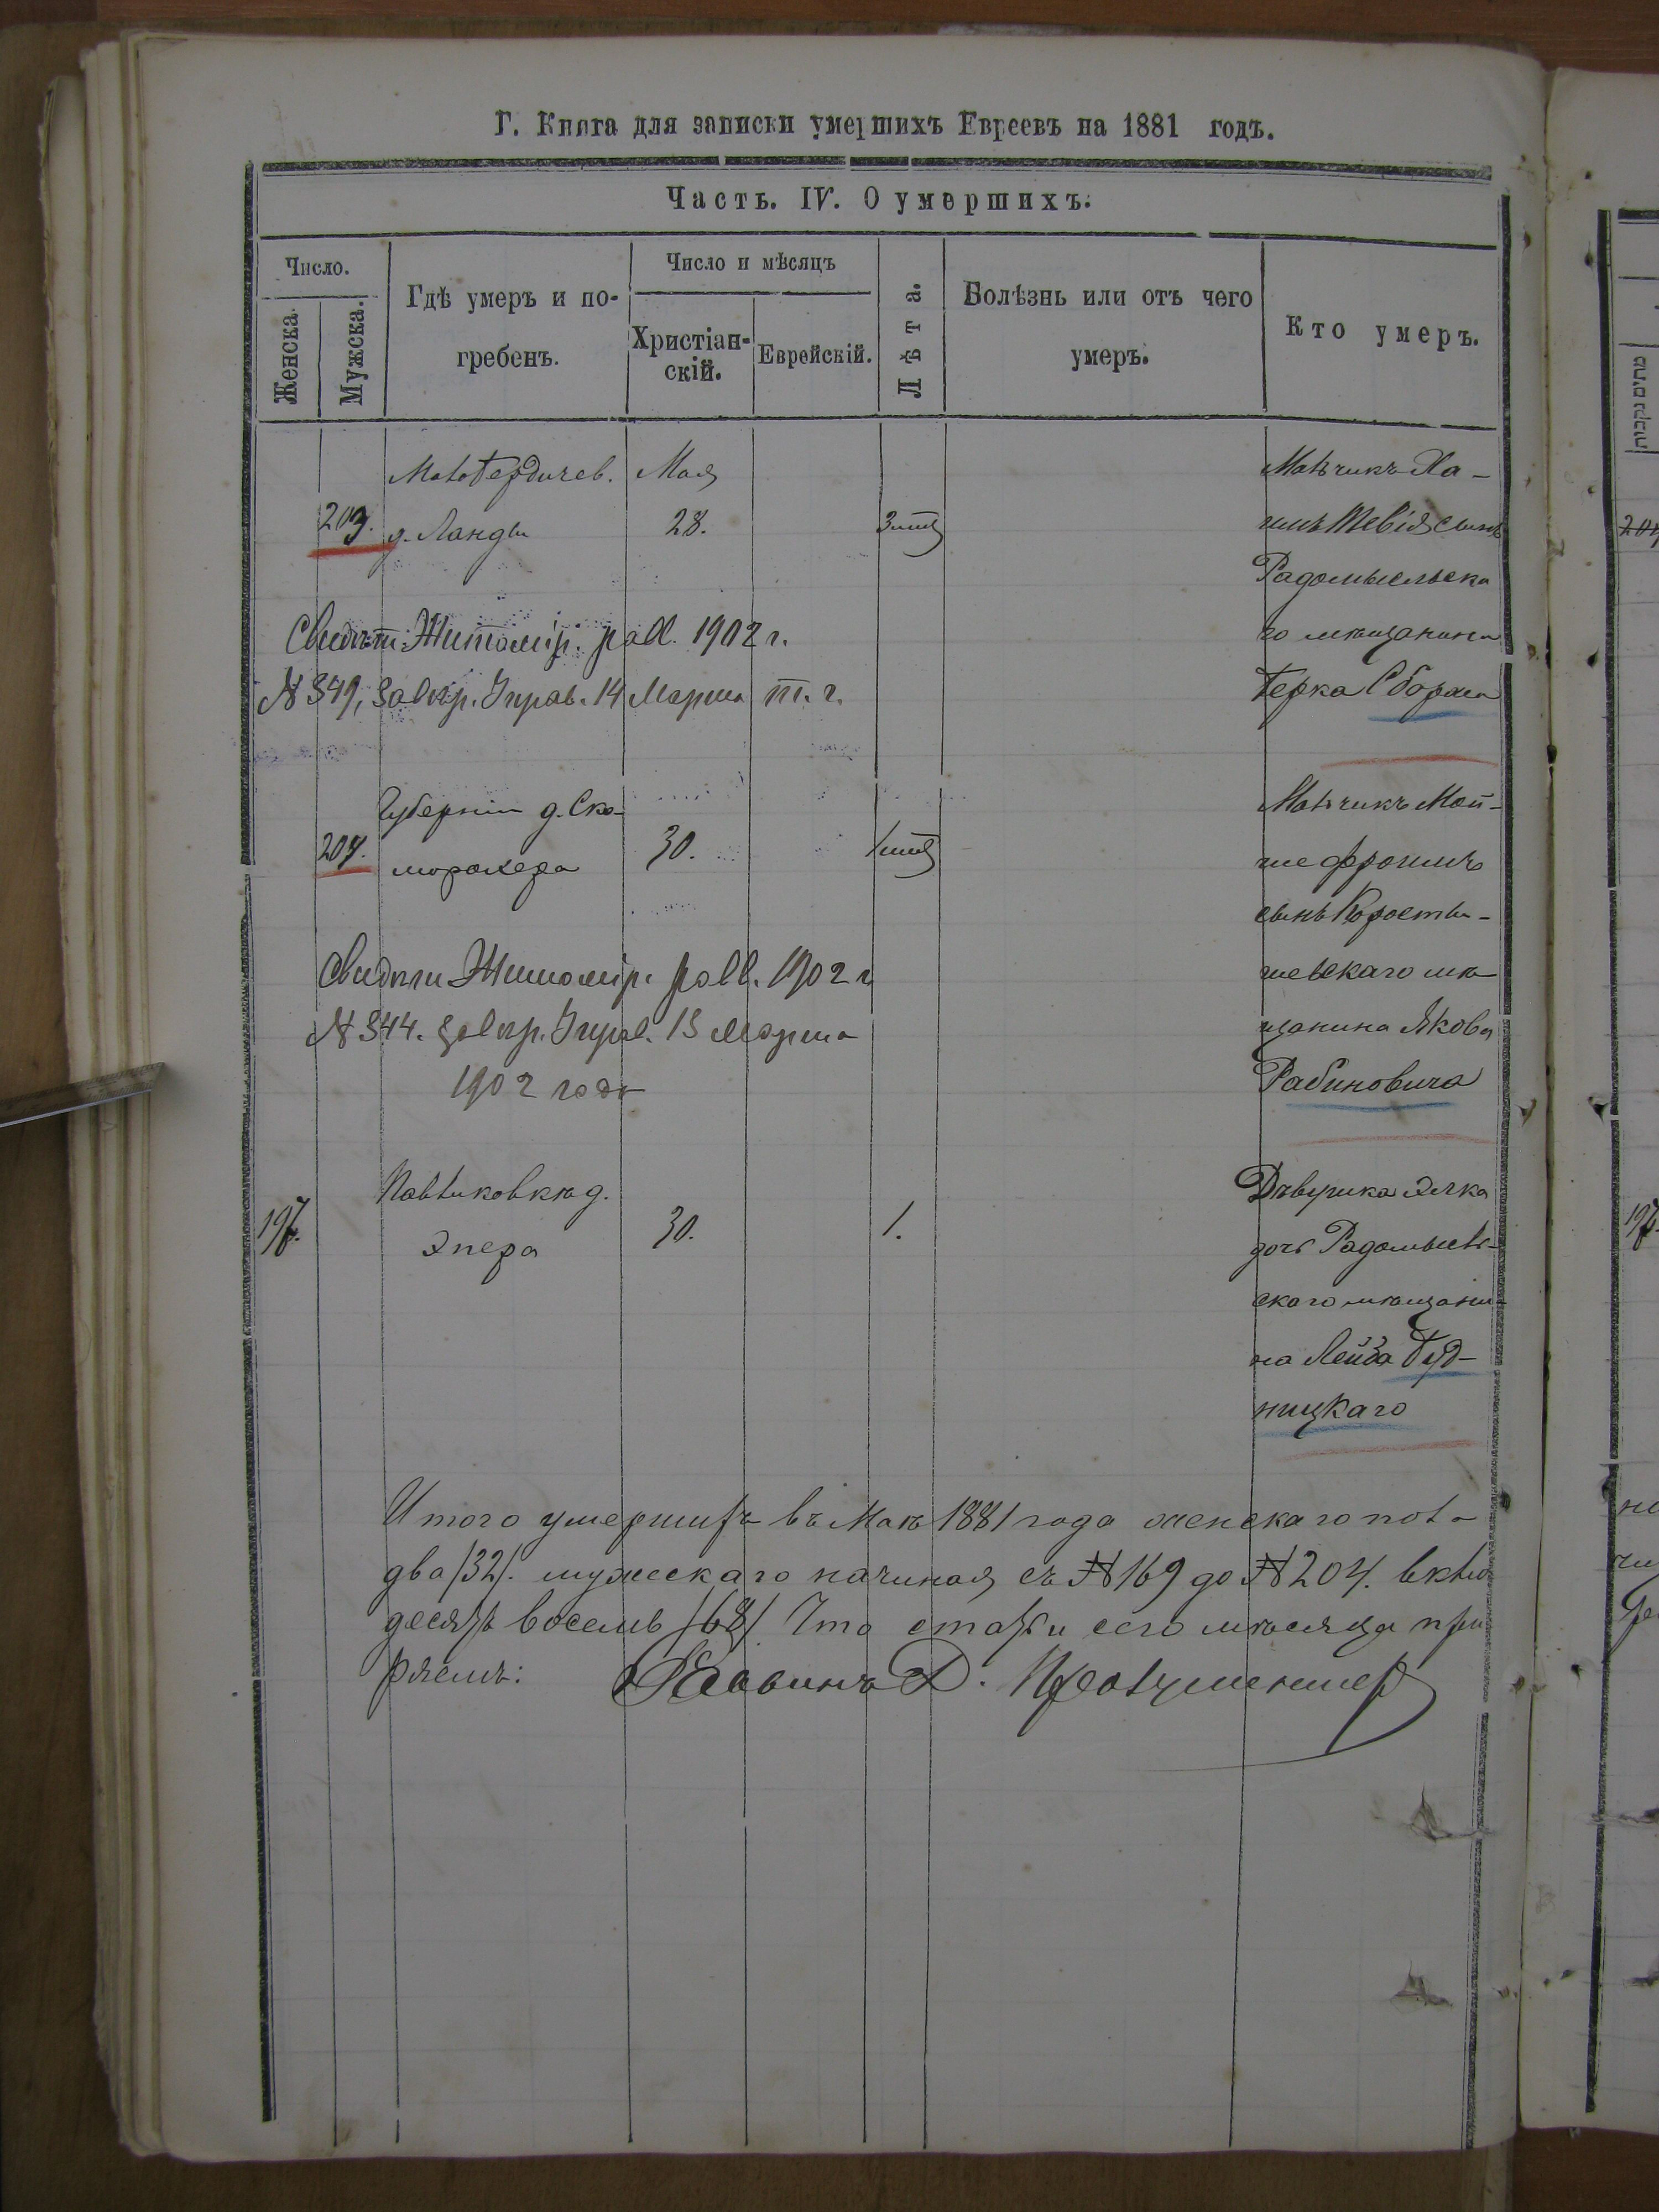 Г. Книга для записки умершихъ Евреевъ на 1881 годъ.
Часть. IV. О умершихъ.
Число.
Женска.
Мужска.
Гдѣ умеръ и по-
гребенъ.
Число и мѣсяцъ
Христіан-
скій.
Еврейскій.
Лѣта.
Болѣзнь или отъ чего
умеръ.
Кто умеръ.
203.
Малобердичев.
д. Ланды
Мая
28.
Мальчикъ Ха-
имъ Тевія сынъ
Радомысльска
го мѣщанина
Берка Сборща
Свидѣт. Житомір. равв. 1902 г.
№ 349, завѣр. Управ. 14 Марта т. г.
204.
Губерніи д. Ско-
морохера
30.
Мальчикъ Мой-
ше Фроимъ
сынъ Корости-
шевскаго мѣ-
щанина Якова
Рабиновича
Свидѣт Житомір. равв. 1902 г
№ 344. завѣр. Управ. 13 Марта
1902 года
197.
Павликовкѣ д.
Эпера
30.
1.
Дѣвушка Элка
дочь Радомысль-
скаго мѣщани-
на Лейба Буд-
ницкаго
Итого умершихъ въ Маѣ 1881 года женскаго пола
два /32/. мужескаго начиная съ №169 до №204. вклю
десятъ восемь /68/ Что статьи сего мѣсяца при
ряемъ: Раввинъ Д.
204
197.